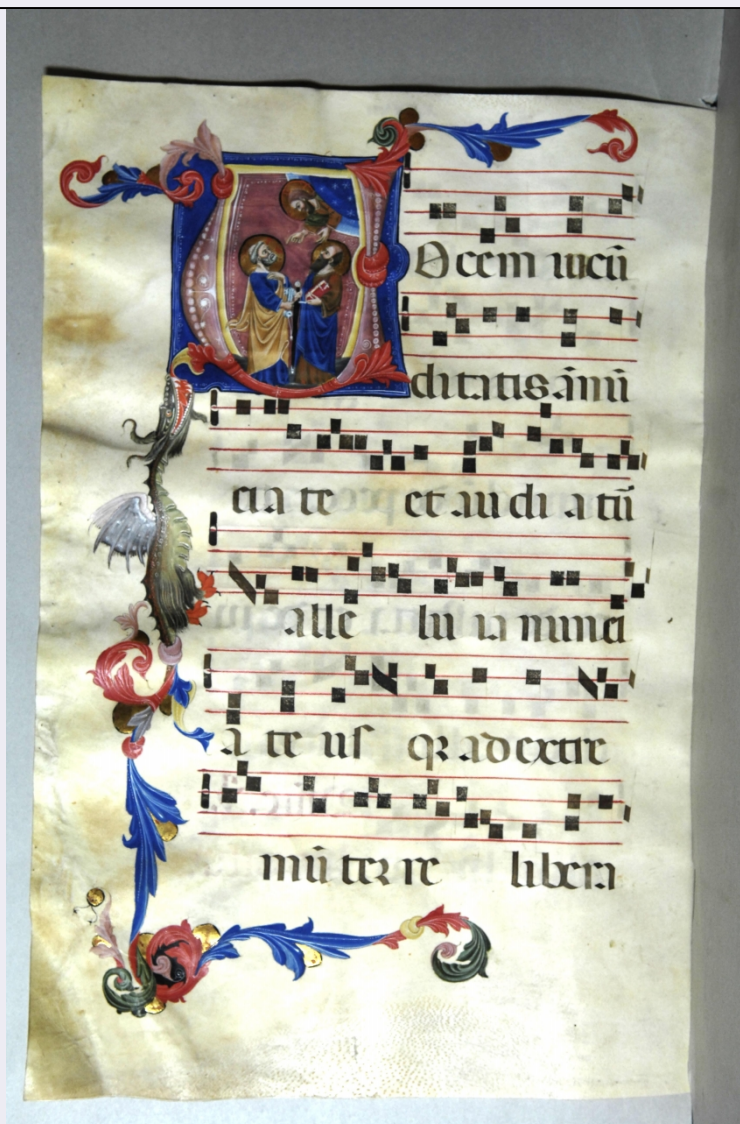 Vocem iocū
ditatis ānū
cia te et au di a tū
alle lu ia nunci
a te usqȝ ad extre
mū ter re libera